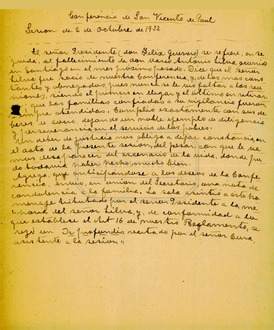 Conferencia de San Vicente de Paul
Sesion de 2 de Octubre de 1932
El señor Presidente, don Félix Guerrero se refirió, en se
guida, al fallecimiento de don Mario Antonio Silva, ocurrido
en Santiago en el mes próximo pasado. Dice que el señor
Silva fué socio de nuestra Conferencia, y de los mas cons
tantes y abnegados, pues nunca se le vió faltar a las reu
niones, siendo el primero en llegar y el último en retirar
que las familias confiadas a su vigilancia fueron
atendidas. Cumplió exactamente con sus de
beres de socio, dejando un noble ejemplo de diligencia
y perseverancia en el servicio de los pobres.
Un deber de justicia nos obliga a dejar constancia, en
el acta de la presente sesion, del pesar con que le he
mos desaparecer del escenario de la vida, donde pu
do todavia haber hecho mucho bien.
Agrega, que anticipándose a los deseos de la Confe
rencia, envió, en union del Secretario, una nota de
condolencia a la familia. La sala asintió a este ho
menaje tributado por el señor Presidente a la me
moria del señor Silva y, de conformidad a lo
que establece el Art 16 de nuestro Reglamento, se
rezó un De profundis recitado por el señor Cura
asistente a la sesion.